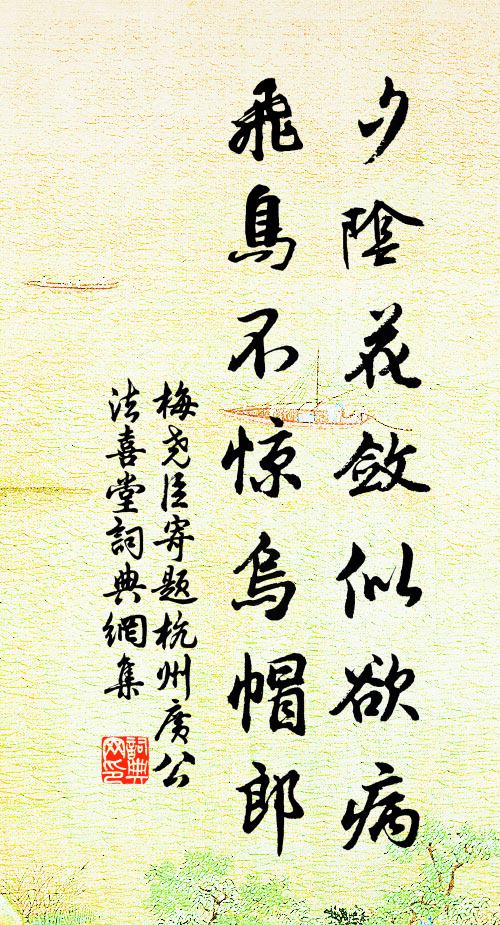 夕陰花斂似欲病
飛鳥不惊烏帽郎
梅尧臣寄题杭州广公
法喜堂詞典網集
詞典
网印